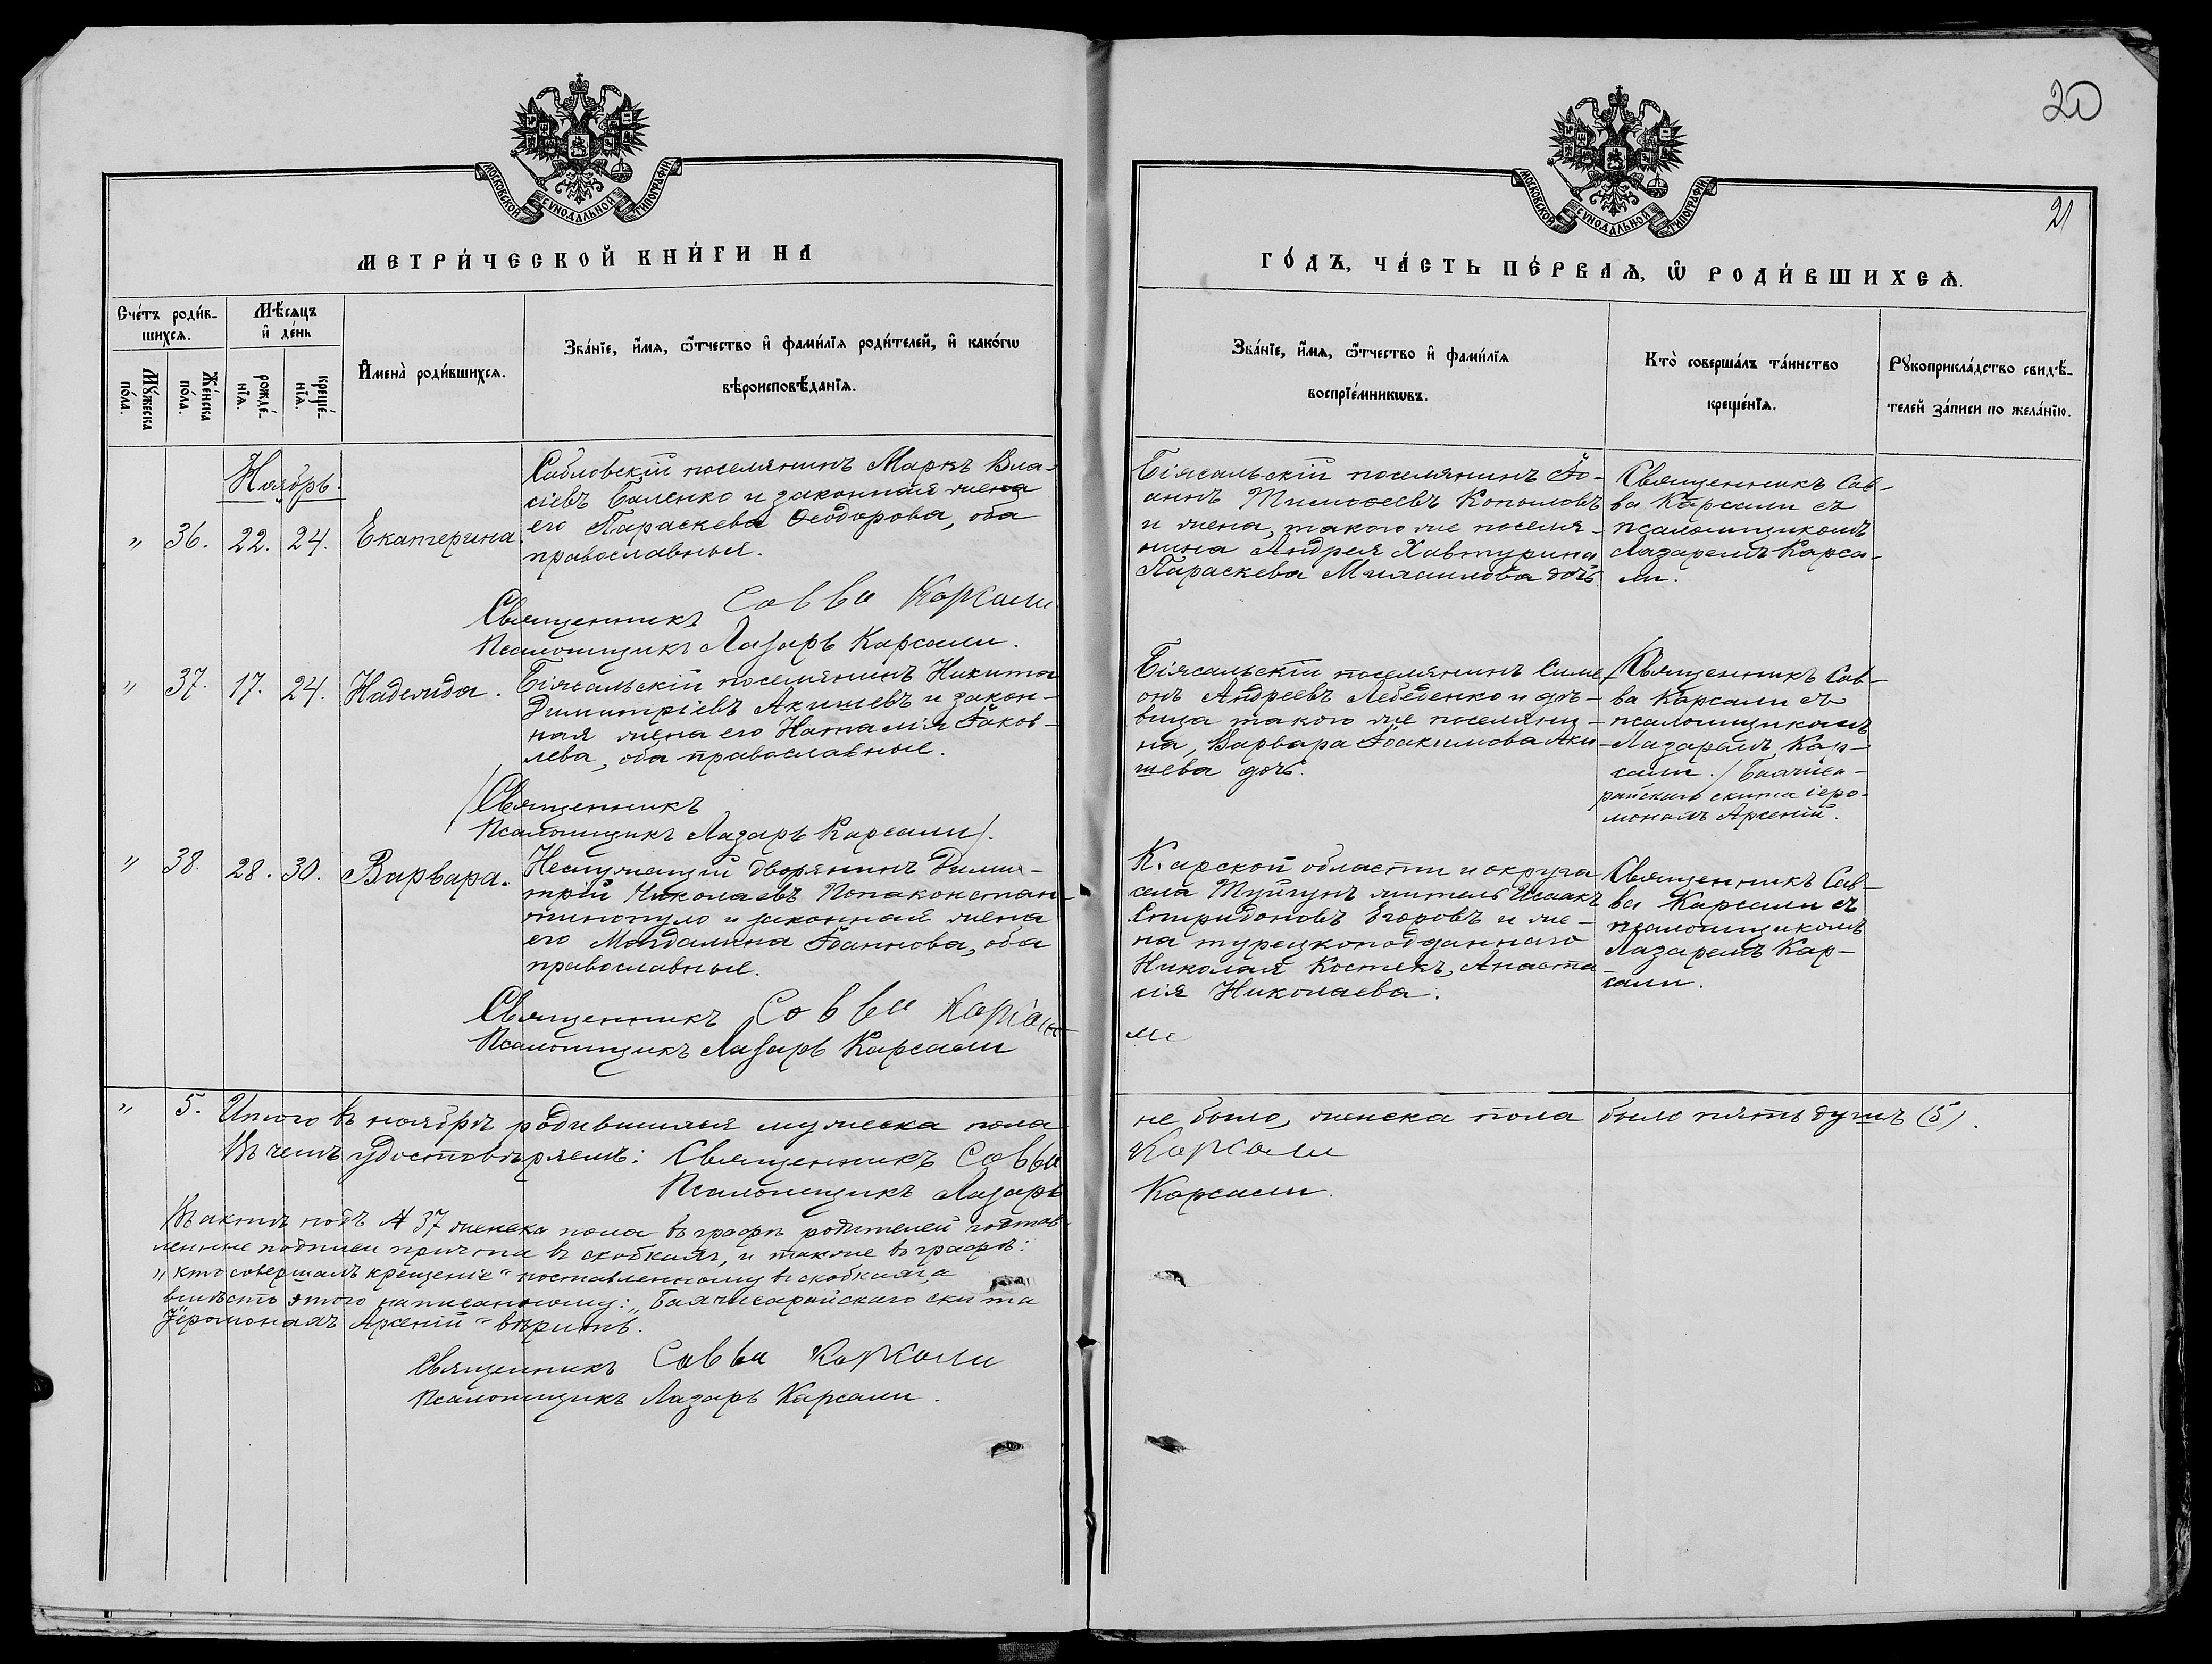 20
21
МОСКОВСКОЙ СѴНОДАЛЬНОЙ ТИПОГРАФІИ
МОСКОВСКОЙ СѴНОДАЛЬНОЙ ТИПОГРАФІИ
МЕТРИ́ЧЕСКОЙ КНИ́ГИ НА
ГО́ДЪ, ЧА́СТЬ ПЕ́РВАѦ, Ѽ РОДИ́ВШИХСѦ.
Сче́тъ роди́в-
шихсѧ.
Мѣ́сѧцъ
и҆ де́нь
Мꙋ́жеска
по́ла.
Же́нска
по́ла.
рожде́-
нїѧ.
креще́-
нїѧ.
И҆мена̀ роди́вшихсѧ.
Зва́нїе, и҆́мѧ, ѻ҆́тчество и҆ фами́лїѧ роди́телей, и҆ како́гѡ
вѣроисповѣ́данїѧ.
Зва́нїе, и҆́мѧ, ѻ҆́тчество и҆ фами́лїѧ
воспрїе́мникѡвъ.
Кто̀ соверша́лъ та́инство
креще́нїѧ.
Рꙋкоприкла́дство свидѣ́-
телей за́писи по жела́нїю.
Ноябрь.
" 36. 22. 24. Екатерина.
Сабловскій поселянинъ Маркъ Вла-
сіевъ Баленко и законная жена
его Параскева Ѳеодорова, оба
православные.
Священникъ Савва Карсали
Псаломщикъ Лазарь Карсали.
Біясальскій поселянинъ Іо-
аннъ Тимоѳеевъ Копыловъ
и жена, такого же поселя-
нина Андрея Хавтурина
Параскева Михаилова дочь.
Священникъ Сав-
ва Карсали съ
псаломщикомъ
Лазаремъ Карса-
ли.
" 37. 17. 24. Надежда.
Біясальскій поселянинъ Никита
Димитріевъ Акишевъ и закон-
ная жена его Наталія Іаков-
лева, оба православные.
(Священникъ
Псаломщикъ Лазарь Карсали).
Біясальскій поселянинъ Симе-
онъ Андреевъ Лебеденко и дѣ-
вица такого же поселяни-
на, Варвара Іоакимова Аки-
шева дочь.
(Священникъ Сав-
ва Карсали съ
псаломщикомъ
Лазаремъ Кар-
сали.) Бахчиса-
райскаго скита іеро-
монахъ Арсеній.
" 38. 28. 30. Варвара.
Неслужащій дворянинъ Дими-
трій Николаевъ Попаконстан-
тинопуло и законная жена
его Магдалина Іоаннова, оба
православные.
Священникъ Савва Карсали
Псаломщикъ Лазарь Карсали
Карской области и округа
села Туйгунъ житель Исаакъ
Спиридоновъ Егоровъ и же-
на турецкоподданнаго
Николая Костекъ, Анаста-
сія Николаева.
Священникъ Сав-
ва Карсали съ
псаломщикомъ
Лазаремъ Кар-
сали.
" 5. Итого въ ноябрѣ родившихся мужеска пола не было, женска пола было пять душъ (5).
Въ чемъ удостовѣряемъ: Священникъ Савва Карсали
Псаломщикъ Лазарь Карсали.
Въ актѣ подъ № 37 женска пола въ графѣ родителей постав-
ленные подписи причта въ скобкахъ, и также въ графѣ:
"кто совершалъ крещеніе" поставленному въ скобкахъ, а
вмѣсто этого написанному: "Бахчисарайскаго скита
Іеромонахъ Арсеній" вѣрить.
Священникъ Савва Карсали
Псаломщикъ Лазарь Карсали.